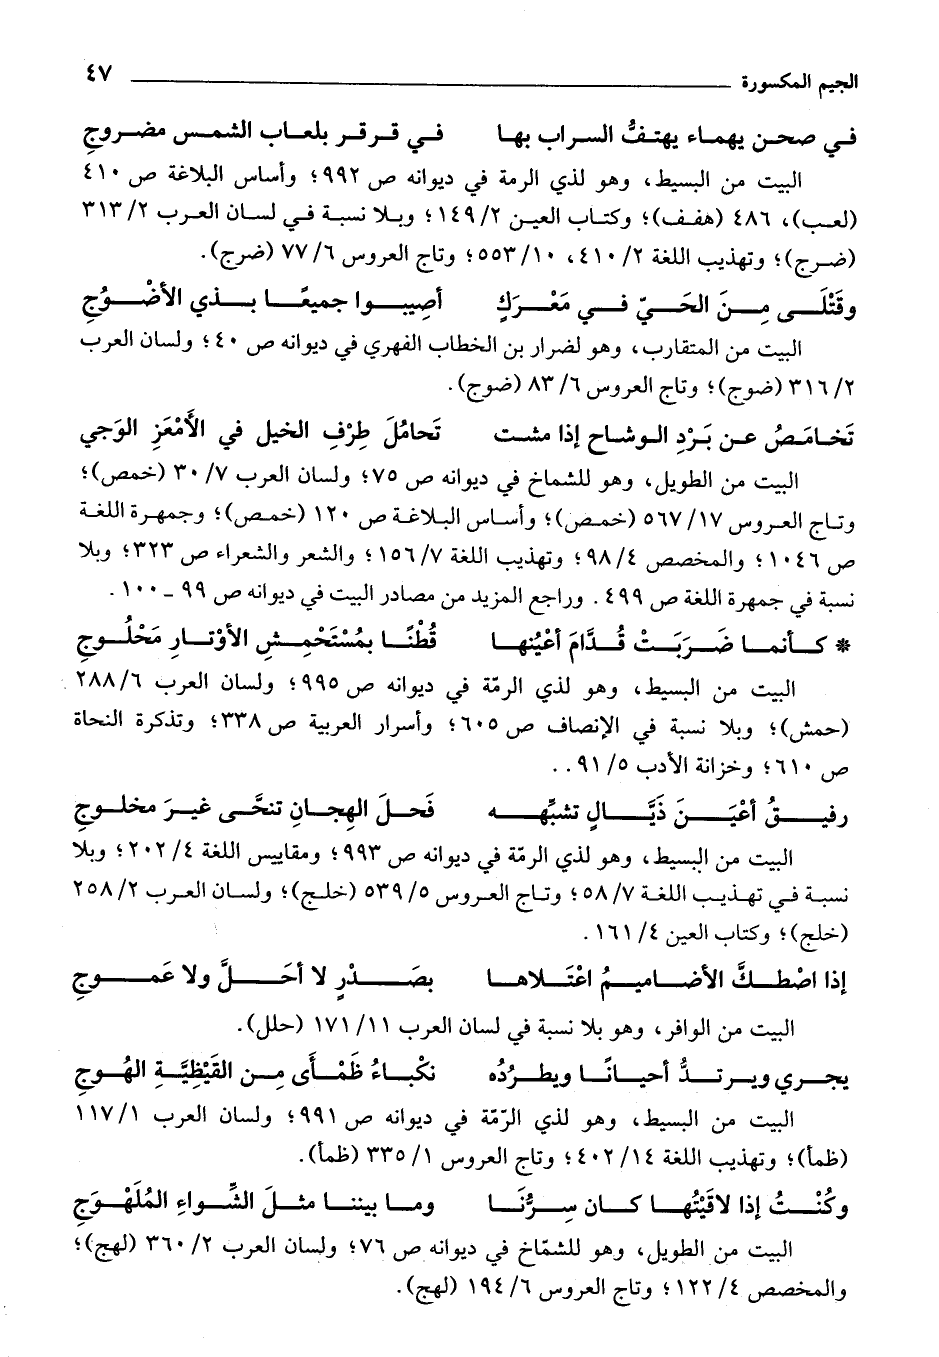 الجيم المكسورة ٤٧
في صحن يهماء يهتفُّ السراب بها في قرقر بلعاب الشمس مضروجِ
البيت من البسيط، وهو لذي الرمة في ديوانه ص ٩٩٢؛ وأساس البلاغة ص ٤١٠
(لعب)، ٤٨٦ (هفف)؛ وكتاب العين ٢/ ١٤٩؛ وبلا نسبة في لسان العرب ٢/ ٣١٣
(ضرج)؛ وتهذيب اللغة ٢/ ٤١٠، ١٠/ ٥٥٣؛ وتاج العروس ٦/ ٧٧ (ضرج).
وقَتْلَى مِنَ الحَيّ في مَعْرَكٍ أصِيبوا جميعًا بذي الأضْوُجِ
البيت من المتقارب، وهو لضرار بن الخطاب الفهري في ديوانه ص ٤٠؛ ولسان العرب
٢/ ٣١٦ (ضوج)؛ وتاج العروس ٦/ ٨٣ (ضوج).
تَخامَصُ عن بَرْدِ الوشاح إذا مشت تَحامُلَ طِرْفِ الخيل في الأَمْعَزِ الوَجي
البيت من الطويل، وهو للشماخ في ديوانه ص ٧٥؛ ولسان العرب ٧/ ٣٠ (خمص)؛
وتاج العروس ١٧/ ٥٦٧ (خمص)؛ وأساس البلاغة ص ١٢٠ (خمص)؛ وجمهرة اللغة
ص ١٠٤٦؛ والمخصص ٤/ ٩٨؛ وتهذيب اللغة ٧/ ١٥٦؛ والشعر والشعراء ص ٣٢٣؛ وبلا
نسبة في جمهرة اللغة ص ٤٩٩. وراجع المزيد من مصادر البيت في ديوانه ص ٩٩ - ١٠٠.
* كأنما ضَرَبَتْ قُدَّامَ أعْيُنِها قُطْنًا بمُسْتَحْمِشِ الأوْتارِ مَحْلُوجِ
البيت من البسيط، وهو لذي الرمّة في ديوانه ص ٩٩٥؛ ولسان العرب ٦/ ٢٨٨
(حمش)؛ وبلا نسبة في الإنصاف ص ٦٠٥؛ وأسرار العربية ص ٣٣٨؛ وتذكرة النحاة
ص ٦١٠؛ وخزانة الأدب ٥/ ٩١..
رفيقُ أعْيَنَ ذَيَّالٍ تشبِّهه فَحلَ الهِجانِ تنحَّى غيرَ مخلوجِ
البيت من البسيط، وهو لذي الرمّة في ديوانه ص ٩٩٣؛ ومقاييس اللغة ٤/ ٢٠٢؛ وبلا
نسبة في تهذيب اللغة ٧/ ٥٨؛ وتاج العروس ٥/ ٥٣٩ (خلج)؛ ولسان العرب ٢/ ٢٥٨
(خلج)؛ وكتاب العين ٤/ ١٦١.
إذا اصْطكَّ الأضاميمُ اعْتَلاها بصَدْرٍ لا أحَلَّ ولا عَموجِ
البيت من الوافر، وهو بلا نسبة في لسان العرب ١١/ ١٧١ (حلل).
يجري ويرتدُّ أحيانًا ويطرُده نكْباءُ ظَمْأَى مِن القَيْظِيَّةِ الهُوجِ
البيت من البسيط، وهو لذي الرّمّة في ديوانه ص ٩٩١؛ ولسان العرب ١/ ١١٧
(ظمأ)؛ وتهذيب اللغة ١٤/ ٤٠٢؛ وتاج العروس ١/ ٣٣٥ (ظمأ).
وكُنْتُ إذا لاقَيْتُها كان سِرُّنَا وما بيننا مثلَ الشِّواءِ المُلَهْوَجِ
البيت من الطويل، وهو للشمّاخ في ديوانه ص ٧٦؛ ولسان العرب ٢/ ٣٦٠ (لهج)؛
والمخصص ٤/ ١٢٢؛ وتاج العروس ٦/ ١٩٤ (لهج).